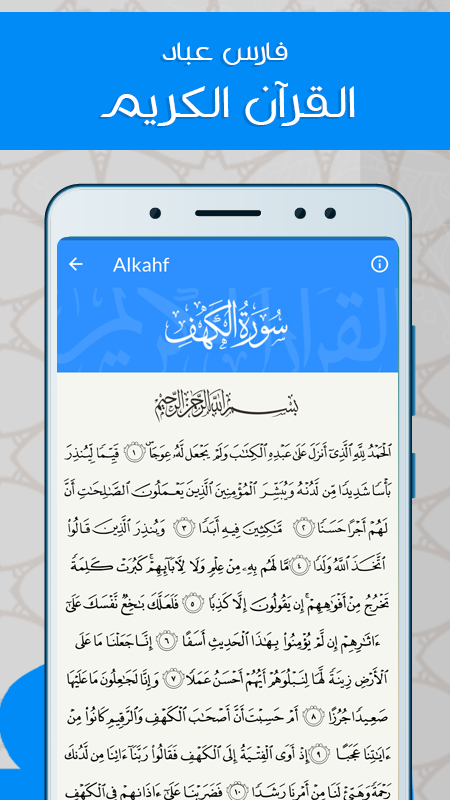 فارس عباد
القرآن الكريم
Alkahf
سُورَةُ الكَهْفِ
بِسْمِ اللَّهِ الرَّحْمَٰنِ الرَّحِيمِ
ٱلْحَمْدُ لِلَّهِ ٱلَّذِىٓ أَنزَلَ عَلَىٰ عَبْدِهِ ٱلْكِتَٰبَ وَلَمْ يَجْعَل لَّهُۥ عِوَجَاۜ ١ قَيِّمًا لِّيُنذِرَ
بَأْسًا شَدِيدًا مِّن لَّدُنْهُ وَيُبَشِّرَ ٱلْمُؤْمِنِينَ ٱلَّذِينَ يَعْمَلُونَ ٱلصَّٰلِحَٰتِ أَنَّ
لَهُمْ أَجْرًا حَسَنًا ٢ مَّٰكِثِينَ فِيهِ أَبَدًا ٣ وَيُنذِرَ ٱلَّذِينَ قَالُوا۟
ٱتَّخَذَ ٱللَّهُ وَلَدًا ٤ مَّا لَهُم بِهِۦ مِنْ عِلْمٍ وَلَا لِءَابَآئِهِمْ ۚ كَبُرَتْ كَلِمَةً
تَخْرُجُ مِنْ أَفْوَٰهِهِمْ ۚ إِن يَقُولُونَ إِلَّا كَذِبًا ٥ فَلَعَلَّكَ بَٰخِعٌ نَّفْسَكَ عَلَىٰٓ
ءَاثَٰرِهِمْ إِن لَّمْ يُؤْمِنُوا۟ بِهَٰذَا ٱلْحَدِيثِ أَسَفًا ٦ إِنَّا جَعَلْنَا مَا عَلَى
ٱلْأَرْضِ زِينَةً لَّهَا لِنَبْلُوَهُمْ أَيُّهُمْ أَحْسَنُ عَمَلًا ٧ وَإِنَّا لَجَٰعِلُونَ مَا عَلَيْهَا
صَعِيدًا جُرُزًا ٨ أَمْ حَسِبْتَ أَنَّ أَصْحَٰبَ ٱلْكَهْفِ وَٱلرَّقِيمِ كَانُوا۟ مِنْ
ءَايَٰتِنَا عَجَبًا ٩ إِذْ أَوَى ٱلْفِتْيَةُ إِلَى ٱلْكَهْفِ فَقَالُوا۟ رَبَّنَآ ءَاتِنَا مِن لَّدُنكَ
رَحْمَةً وَهَيِّئْ لَنَا مِنْ أَمْرِنَا رَشَدًا ١٠ فَضَرَبْنَا عَلَىٰٓ ءَاذَانِهِمْ فِى ٱلْكَهْفِ